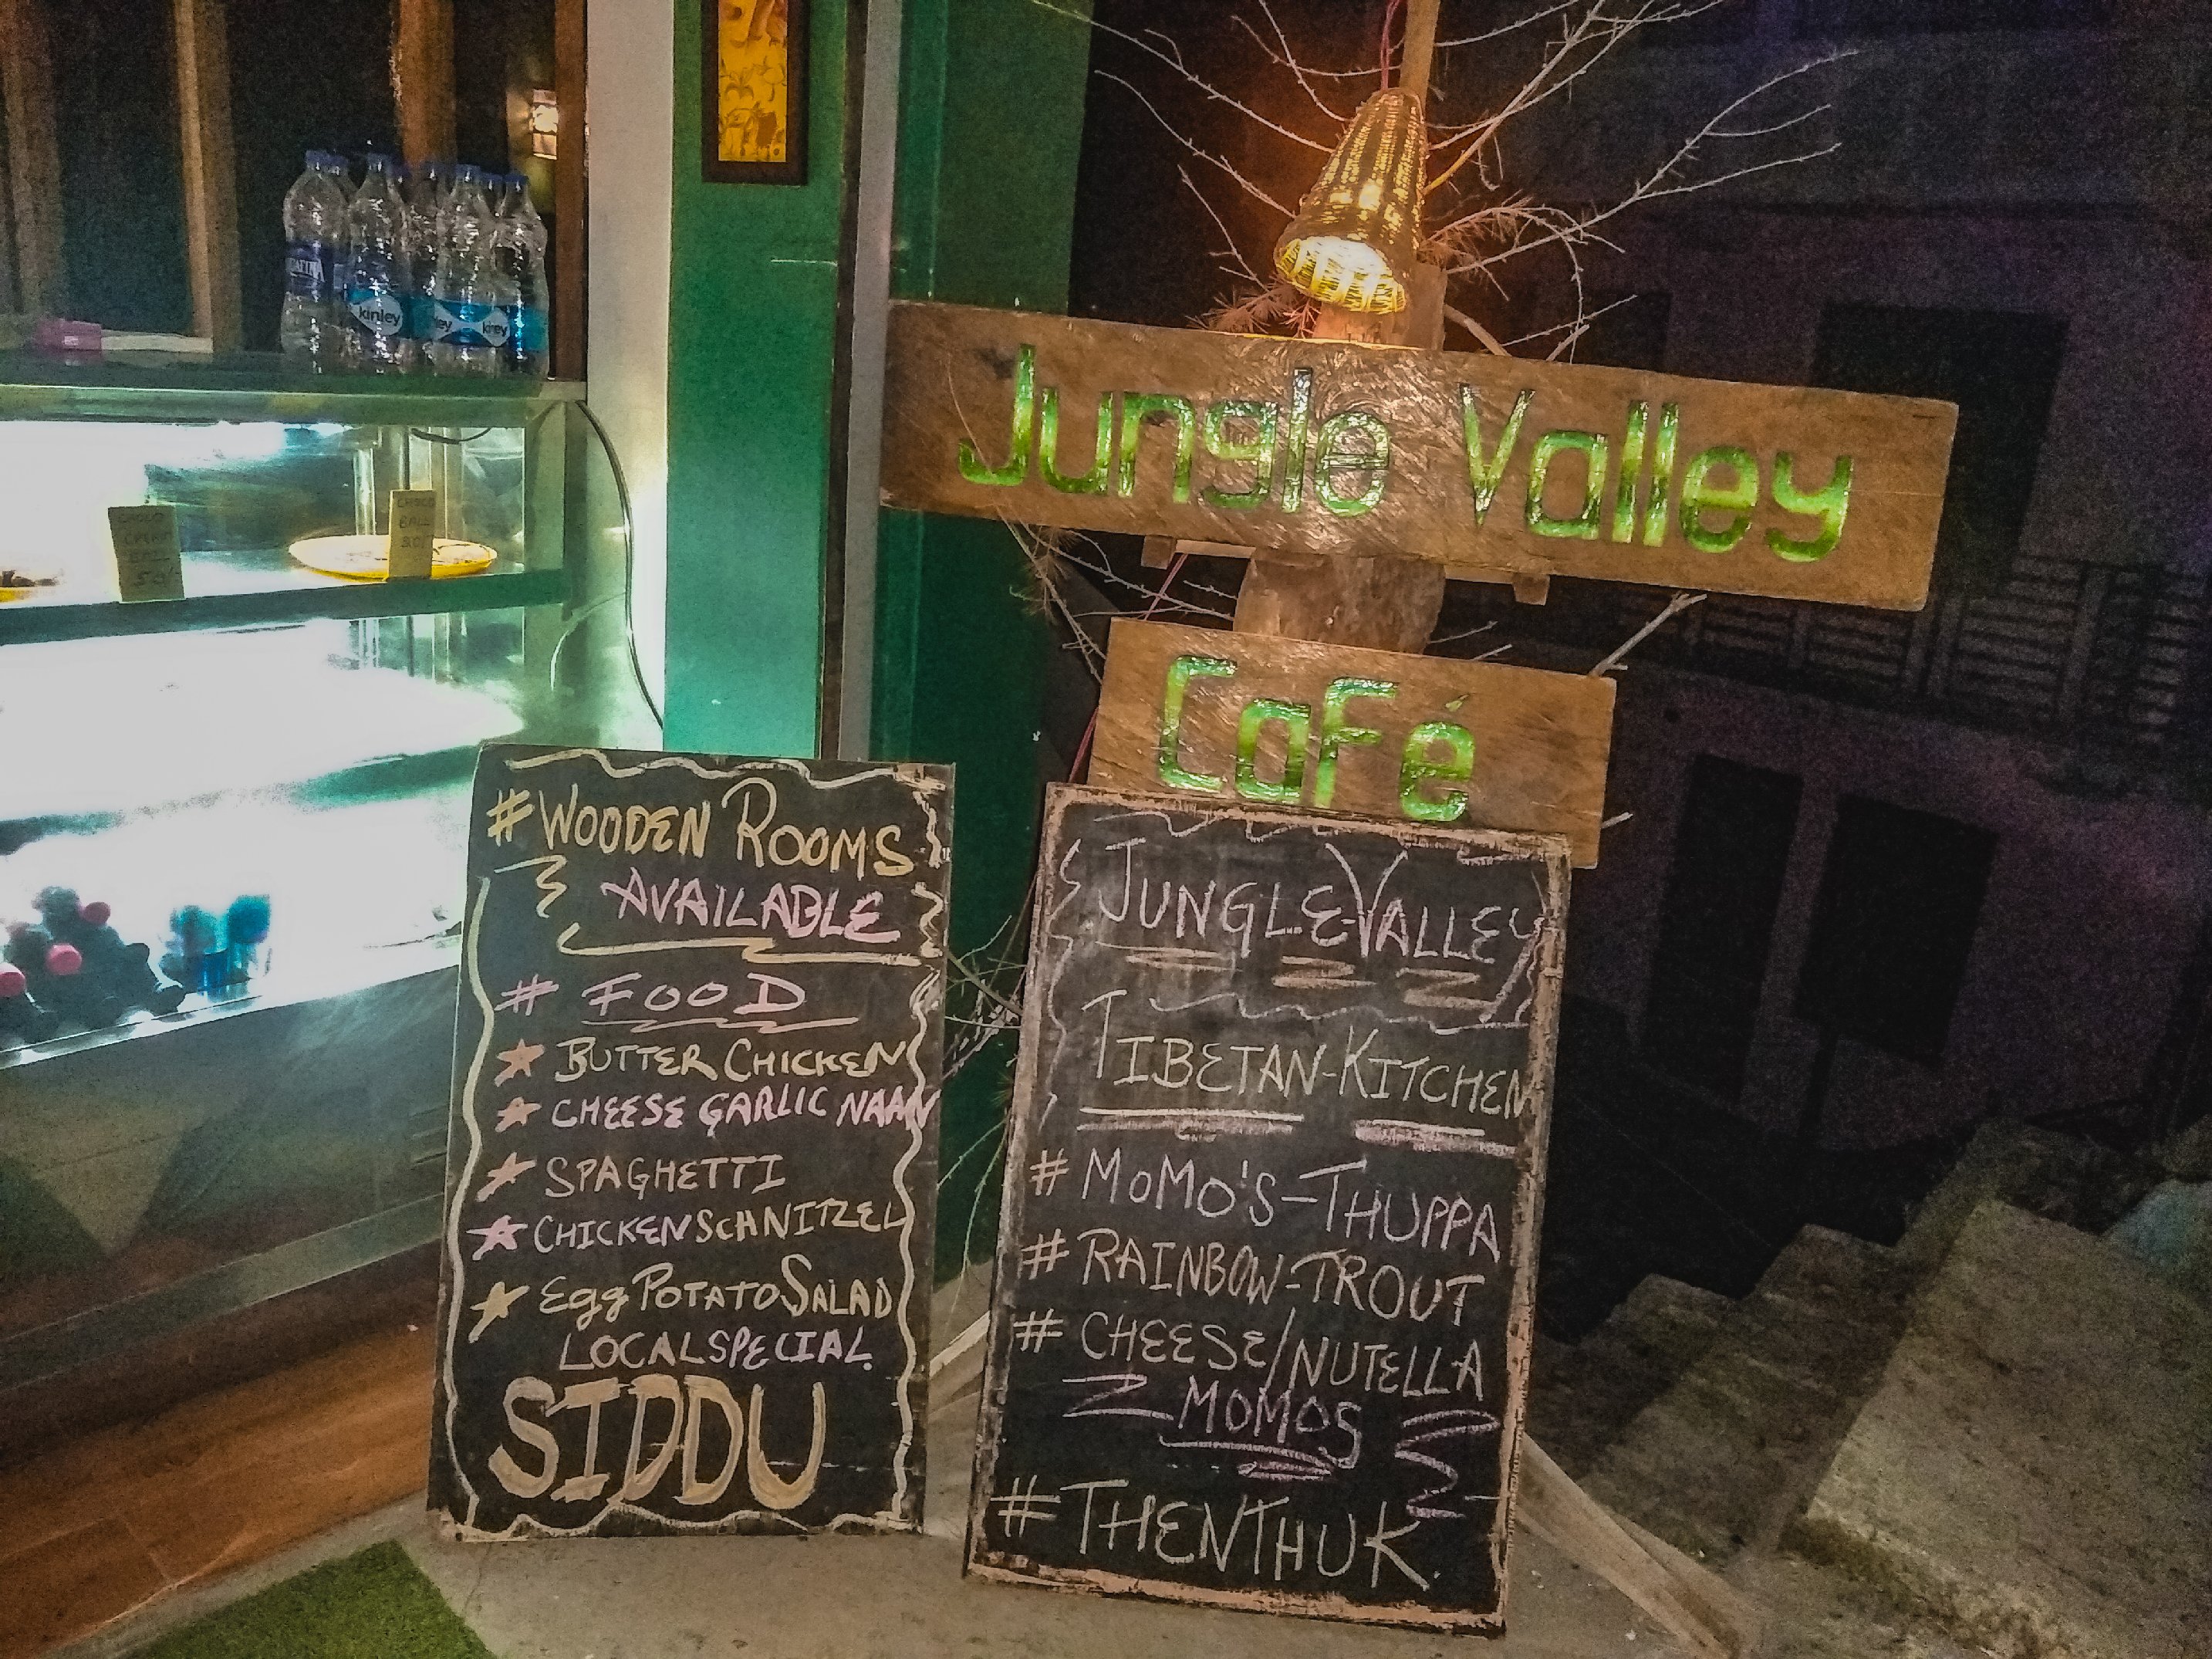 Jungle Valley
CaFé
AFINA
kinley
ley
kinley
CHOCO
CREAM
BALL
50/-
CHOCO
BALL
30/-
# WOODEN ROOMS
AVAILABLE
# FOOD
BUTTER CHICKEN
CHEESE GARLIC NAAN
SPAGHETTI
CHICKEN SCHNITZEL
Egg POTATO SALAD
LOCAL SPECIAL.
SIDDU
JUNGLE-VALLEY
TIBETAN-KITCHEN
# MOMO'S-THUPPA
# RAINBOW-TROUT
# CHEESE/NUTELLA
MOMOS
# THENTHUK.